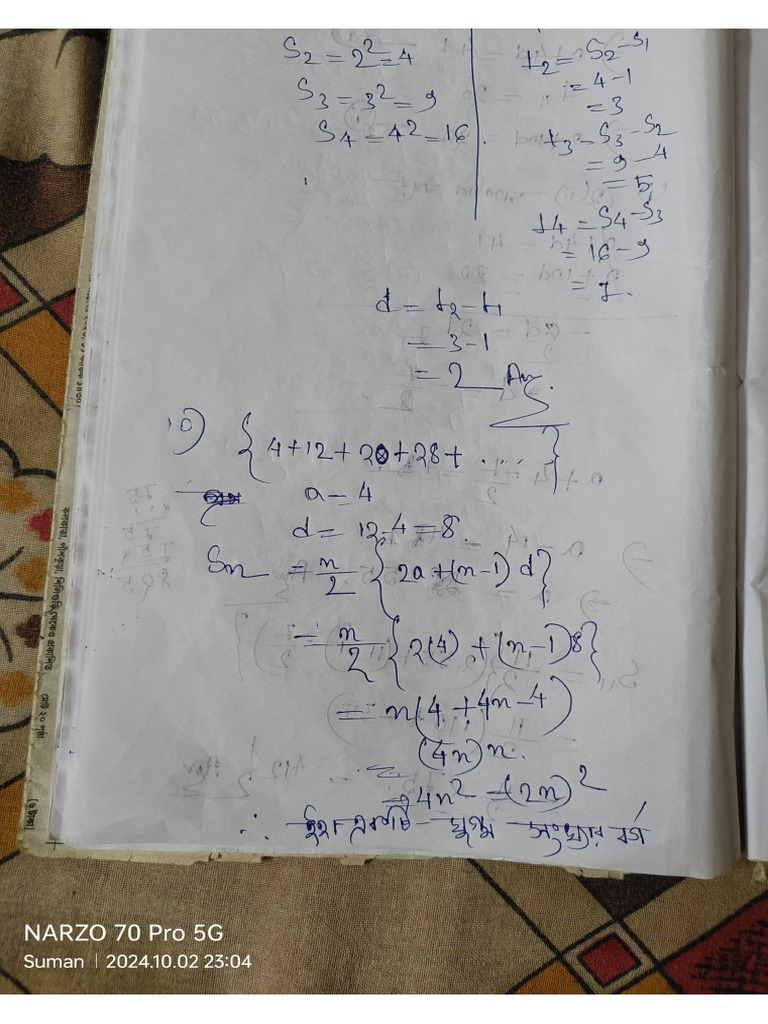 S2 = 2² = 4
S3 = 3² = 9
S4 = 4² = 16.
t2 = S2 - S1
= 4 - 1
= 3
t3 = S3 - S2
= 9 - 4
= 5
t4 = S4 - S3
= 16 - 9
= 7.
d = t2 - t1
= 3 - 1
= 2 Ans.
10) {4 + 12 + 20 + 28 + ....}
a = 4
d = 12 - 4 = 8.
Sn = n/2 {2a + (n-1) d}
= n/2 {2(4) + (n-1)8}
= n(4 + 4n - 4)
= (4n) n.
= 4n² = (2n)²
∴ ইহা একটি যুগ্ম সংখ্যার বর্গ
NARZO 70 Pro 5G
Suman | 2024.10.02 23:04